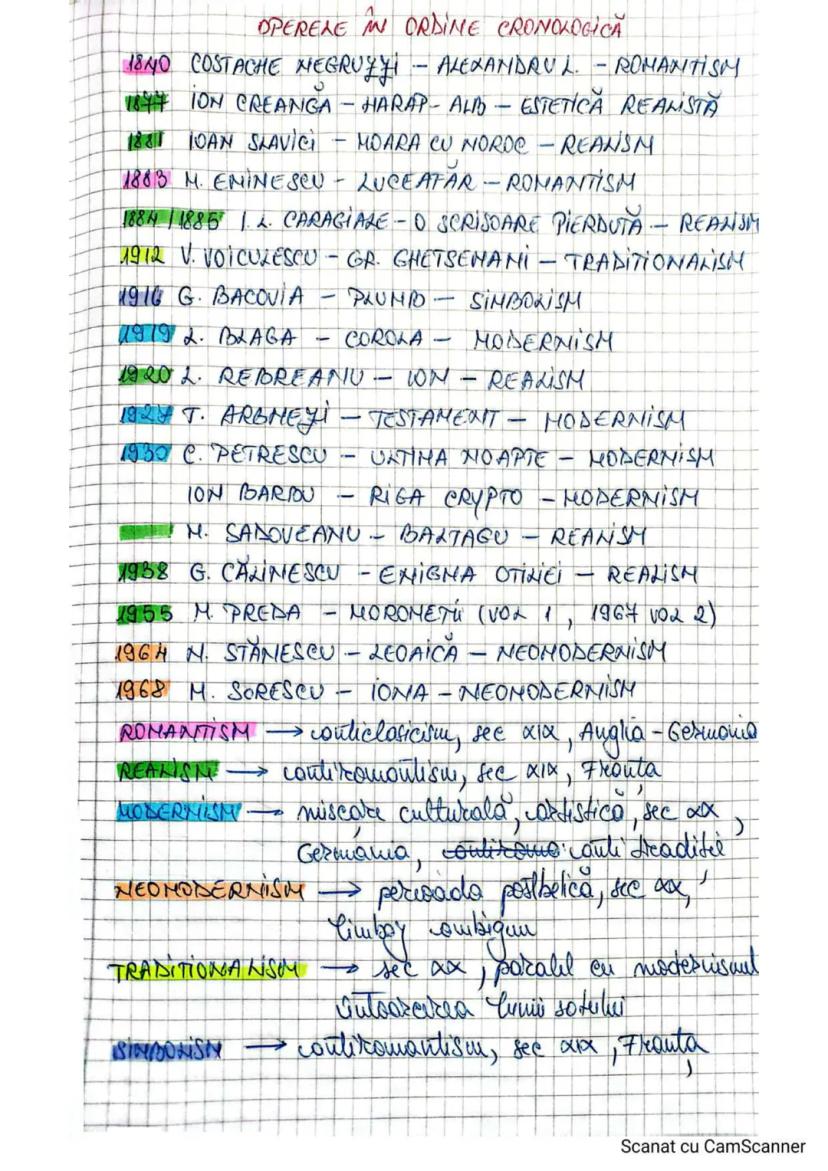 OPERELE ÎN ORDINE CRONOLOGICĂ
1840 COSTACHE NEGRUZZI - ALEXANDRU L. - ROMANTISM
1877 ION CREANGĂ - HARAP-ALB - ESTETICĂ REALISTĂ
1881 IOAN SLAVICI - MOARA CU NOROC - REALISM
1883 M. EMINESCU - LUCEAFĂR - ROMANTISM
1884/1885 I. L. CARAGIALE - O SCRISOARE PIERDUTĂ - REALISM
1912 V. VOICULESCU - GR. GHETSEMANI - TRADITIONALISM
1916 G. BACOVIA - PLUMB - SIMBOLISM
1919 L. BLAGA - COROLA - MODERNISM
1920 L. REBREANU - ION - REALISM
1927 T. ARGHEZI - TESTAMENT - MODERNISM
1930 C. PETRESCU - ULTIMA NOAPTE - MODERNISM
ION BARBU - RIGA CRYPTO - MODERNISM
M. SADOVEANU - BALTAGU - REALISM
1938 G. CĂLINESCU - ENIGMA OTILIEI - REALISM
1955 M. PREDA - MOROMEȚII (VOL 1, 1967 VOL 2)
1964 N. STĂNESCU - LEOAICĂ - NEOMODERNISM
1968 M. SORESCU - IONA - NEOMODERNISM
ROMANTISM → anticlasicism, sec XIX, Anglia - Germania
REALISM → antiromantism, sec XIX, Franța
MODERNISM → mișcare culturală, artistică, sec XX,
Germania, antiroma anti tradiție
NEOMODERNISM → perioada postbelică, sec XX,
limbaj ambiguu
TRADITIONALISM → sec XX, paralel cu modernismul
întoarcerea lumii satului
SIMBOLISM → antiromantism, sec XIX, Franța
Scanat cu CamScanner